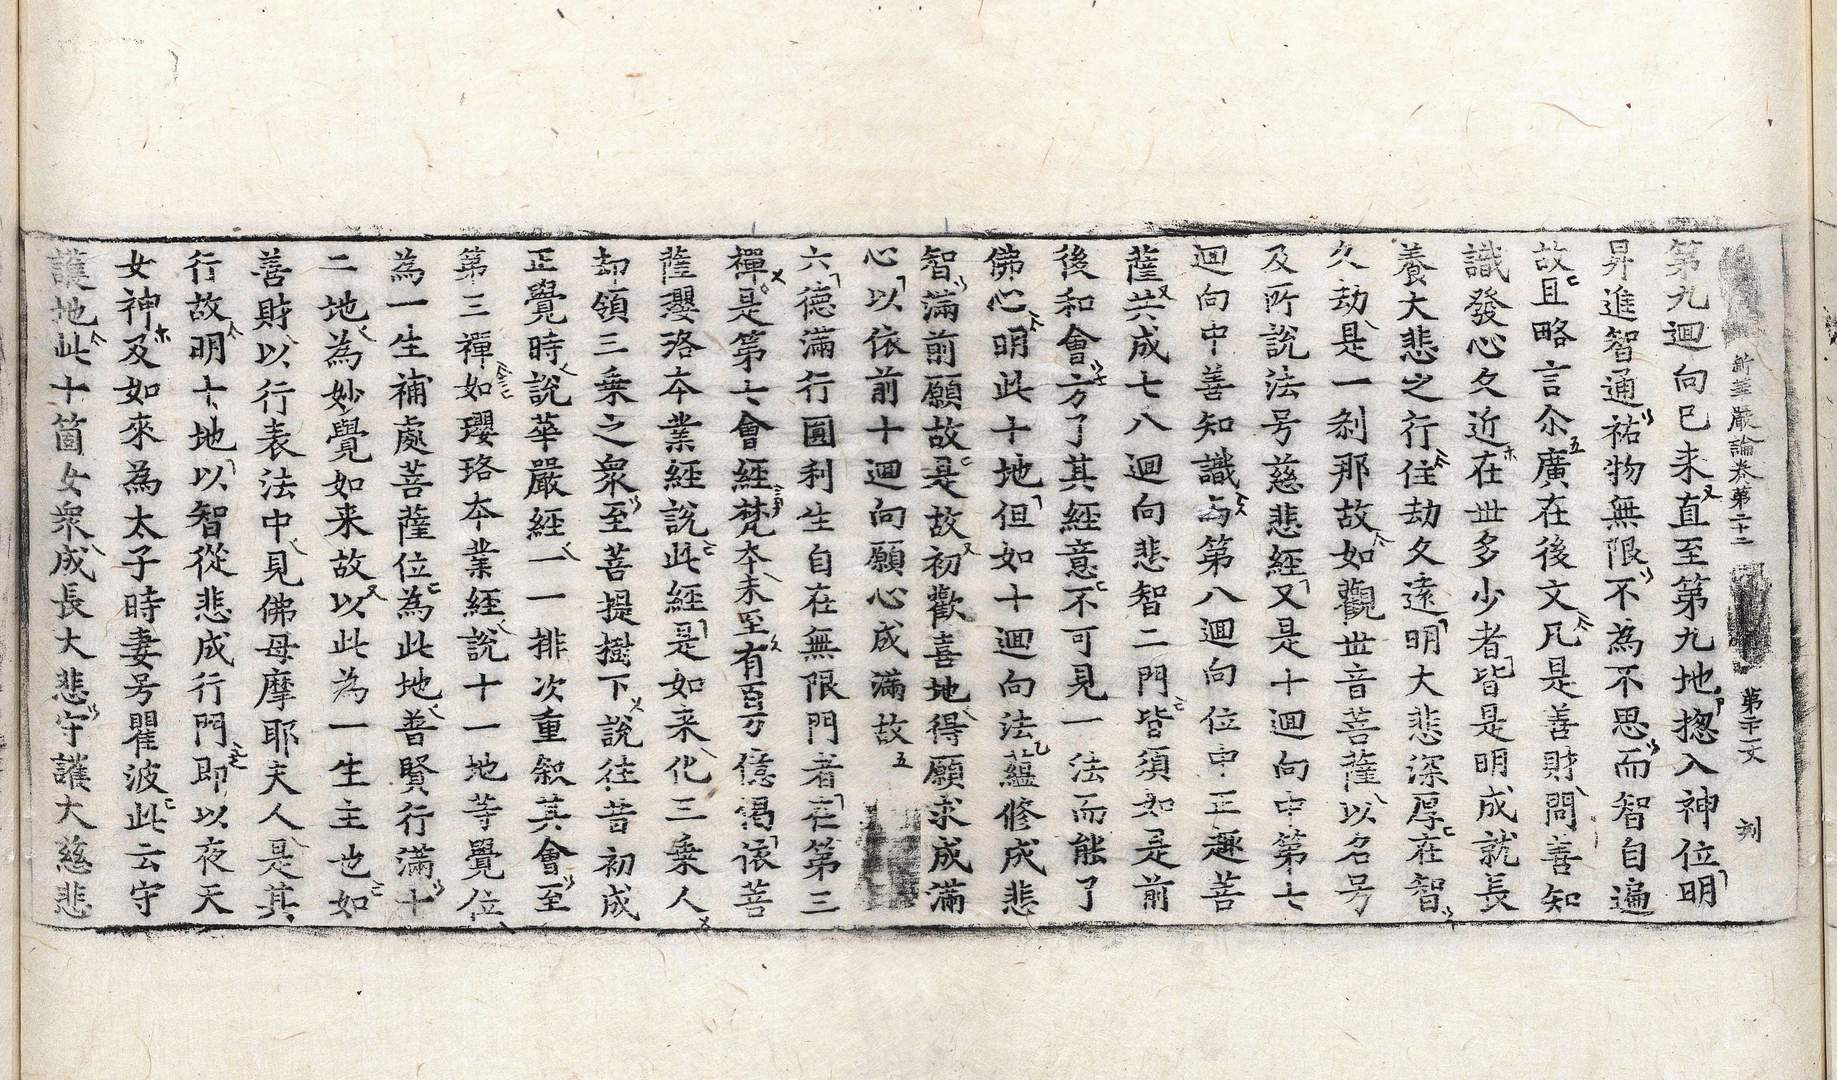 新華嚴論卷第二十二 第十二丈 刻
第九迴向已来直至第九地揔入神位明
昇進智通祐物無限不為不思而智自遍
故且略言尒廣在後文凡是善財問善知
識發心久近在世多少者皆是明成就長
養大悲之行住劫久遠明大悲深厚在智
久劫是一刹那故如觀世音菩薩以名号
及所說法号慈悲經又是十迴向中第七
迴向中善知識与第八迴向位中正趣菩
薩共成七八迴向悲智二門皆須如是前
後和會方了其經意不可見一法而能了
佛心明此十地但如十迴向法蘊修成悲
智滿前願故是故初歡喜地得願求成滿
心以依前十迴向願心成滿故五
六德滿行圓利生自在無限門者在第三
禪是第七會經梵本未至有百万億偈依菩
薩瓔珞本業經說此經是如来化三乗人
却領三乗之衆至菩提樹下說往昔初成
正覺時說華嚴經一一排次重叙其會至
第三禪如瓔珞本業經說十一地等覺位
為一生補處菩薩位為此地普賢行滿十
二地為妙覺如来故以此為一生主也如
善財以行表法中見佛母摩耶夫人是其
行故明十地以智從悲成行門即以夜天
女神及如來為太子時妻号瞿波此云守
護地此十箇女衆成長大悲守護大慈悲